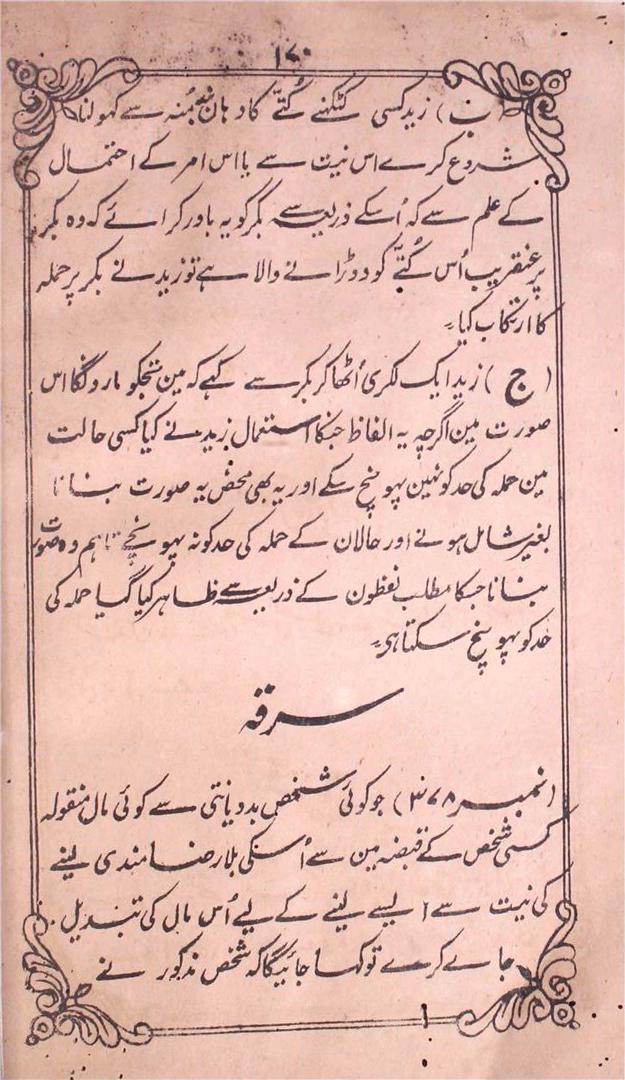 ۱۷۰
(ب) زید کسی کٹکھنے کُتّے کا دہان بند مُنہ سے کھولنا
شروع کرے اس نیت سے یا اس امر کے احتمال
کے علم سے کہ اُسکے ذریعہ سے بکر کو یہ باور کرائے کہ وہ بکر
پر عنقریب اُس کُتّے کو دوڑانے والا ہے تو زید نے بکر پر حملہ
کا ارتکاب کیا۔
(ج) زید ایک لکڑی اُٹھا کر بکر سے کہے کہ مین تجکو مارونگا اس
صورت مین اگرچہ یہ الفاظ جنکا استعمال زید نے کیا کسی حالت
مین حملہ کی حد کو نہین پہونچ سکے اور یہ بھی محض یہ صورت بنانا
بغیر شامل ہونے اور حالات کے حملہ کی حد کو نہ پہونچے تاہم وہ صورت
بنانا جسکا مطلب لفظون کے ذریعہ سے ظاہر کیا گیا حملہ کی
حد کو پہونچ سکتا ہی۔
سرقہ
(نمبر ۳۷۸) جو کوئی شخص بددیانتی سے کوئی مال منقولہ
کسی شخص کے قبضہ مین سے اُسکی بلا رضامندی لینے
کی نیت سے ایسے لینے کے لیے اُس مال کی تبدیل
جاے کرے تو کہا جائیگا کہ شخص مذکور نے